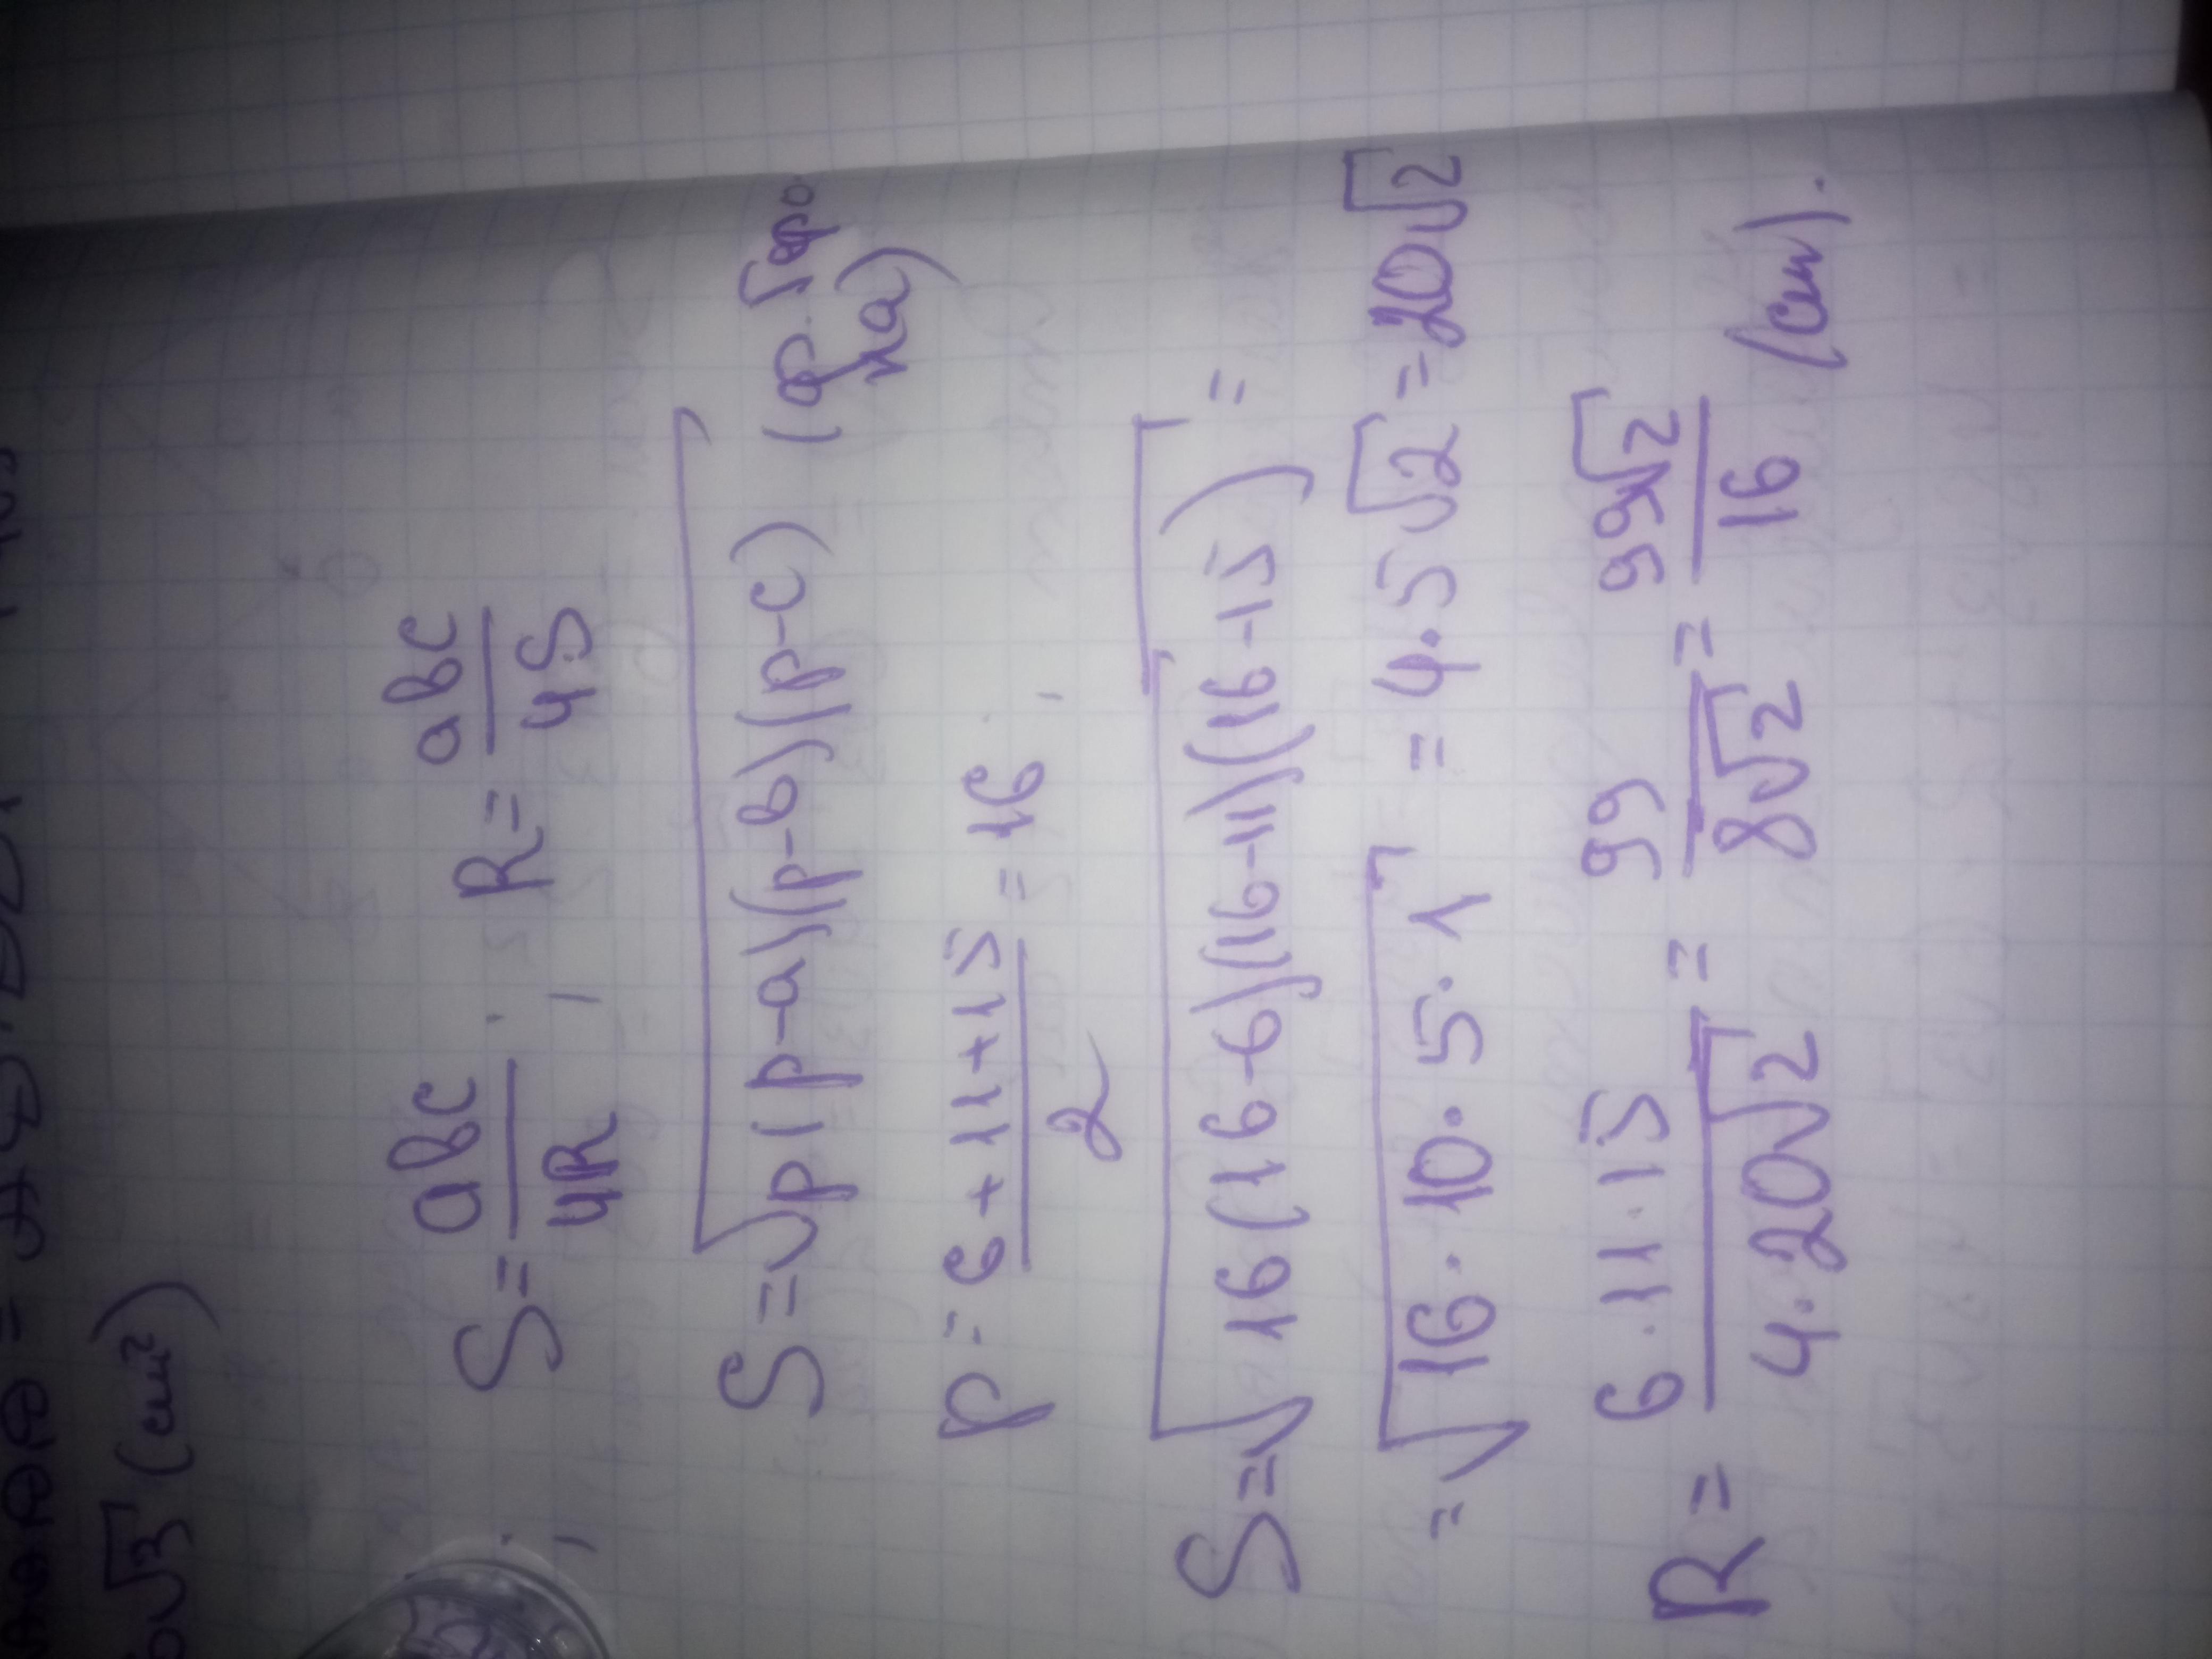 √3 (см²)
S = abc/4R ; R = abc/4S
S = √p(p-a)(p-b)(p-c) (ф. Герона)
p = 6+11+15/2 = 16
S = √16(16-6)(16-11)(16-15) =
= √16·10·5·1 = 4·5√2 = 20√2
R = 6·11·15/4·20√2 = 99/8√2 = 99√2/16 (см).